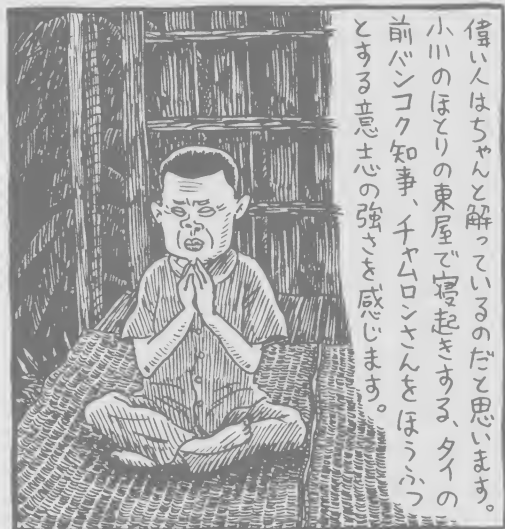 偉い人はちゃんと解っているのだと思います。
小川のほとりの東屋で寝起きする、タイの
前バンコク知事、チャムロンさんをほうふつ
とする意志の強さを感じます。